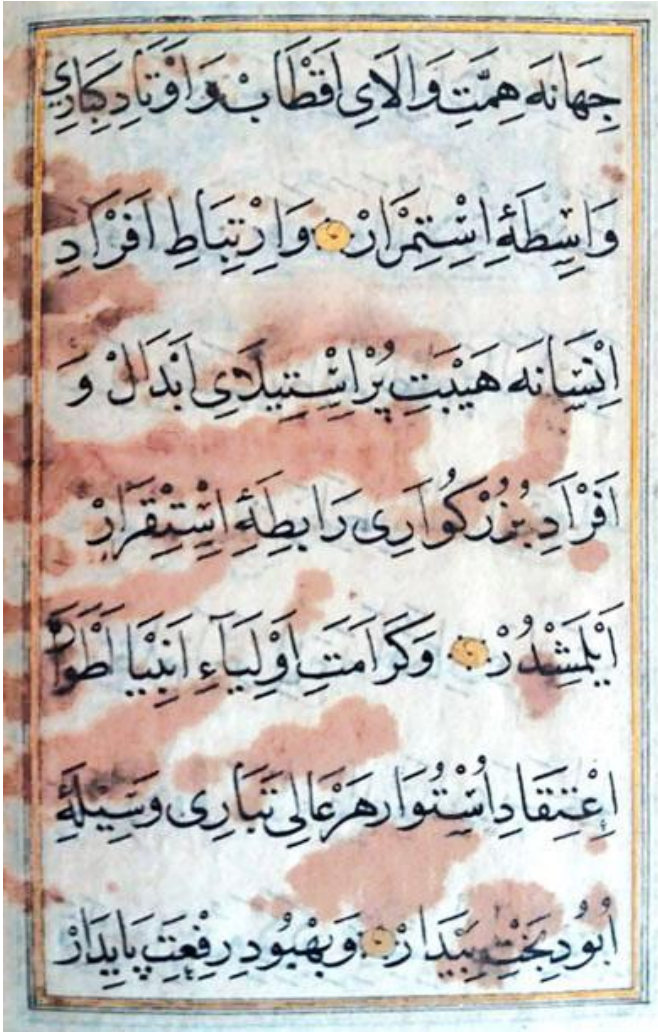 جِهَانَه هِمَّتِ وَالَايِ اَقْطَابْ وَ اَوْتَادِ كِبَارِي
وَاسِطَهٔ اِسْتِمْرَارْ وَاِرْتِبَاطِ اَفْرَادِ
اِنْسَانَه هَيْبَتِ پُرْ اِسْتِيلَايِ اَبْدَالْ وَ
اَفْرَادِ بُزُرْكوُارِى رَابِطَهٔ اِسْتِقْرَارْ
اَيْلَمَشْدُرْ وَكَرَامَتِ اَوْلِيَآءِ اَنْبِيَا اَطْوَارْ
اِعْتِقَادِ اُسْتُوَارِ هَرْ عَالِى تَبَارِى وَسِيلَهٔ
بُودِ بَخْتِ بِيدَارْ وَ بِهْبُودِ رِفْعَتِ پَايِدَارْ